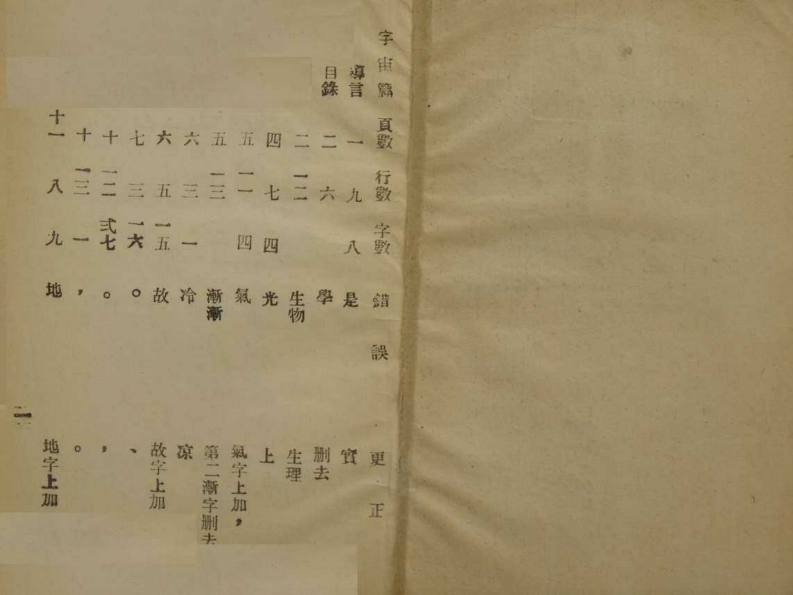 宇宙篇 頁數 行數 字數 錯誤 更正
導言 一 九 八 是 實
目錄 二 六 學 刪去
二 一二 生物 生理
四 七 四 光 上
五 一一 四 氣 氣字上加，
五 一三 漸漸 第二漸字刪去
六 三 一 冷 凉
六 五 一五 故 故字上加
七 三 一六 。 、
十 一二 弍七 。 ，
十 一三 一 ， 。
十一 八 九 地 地字上加